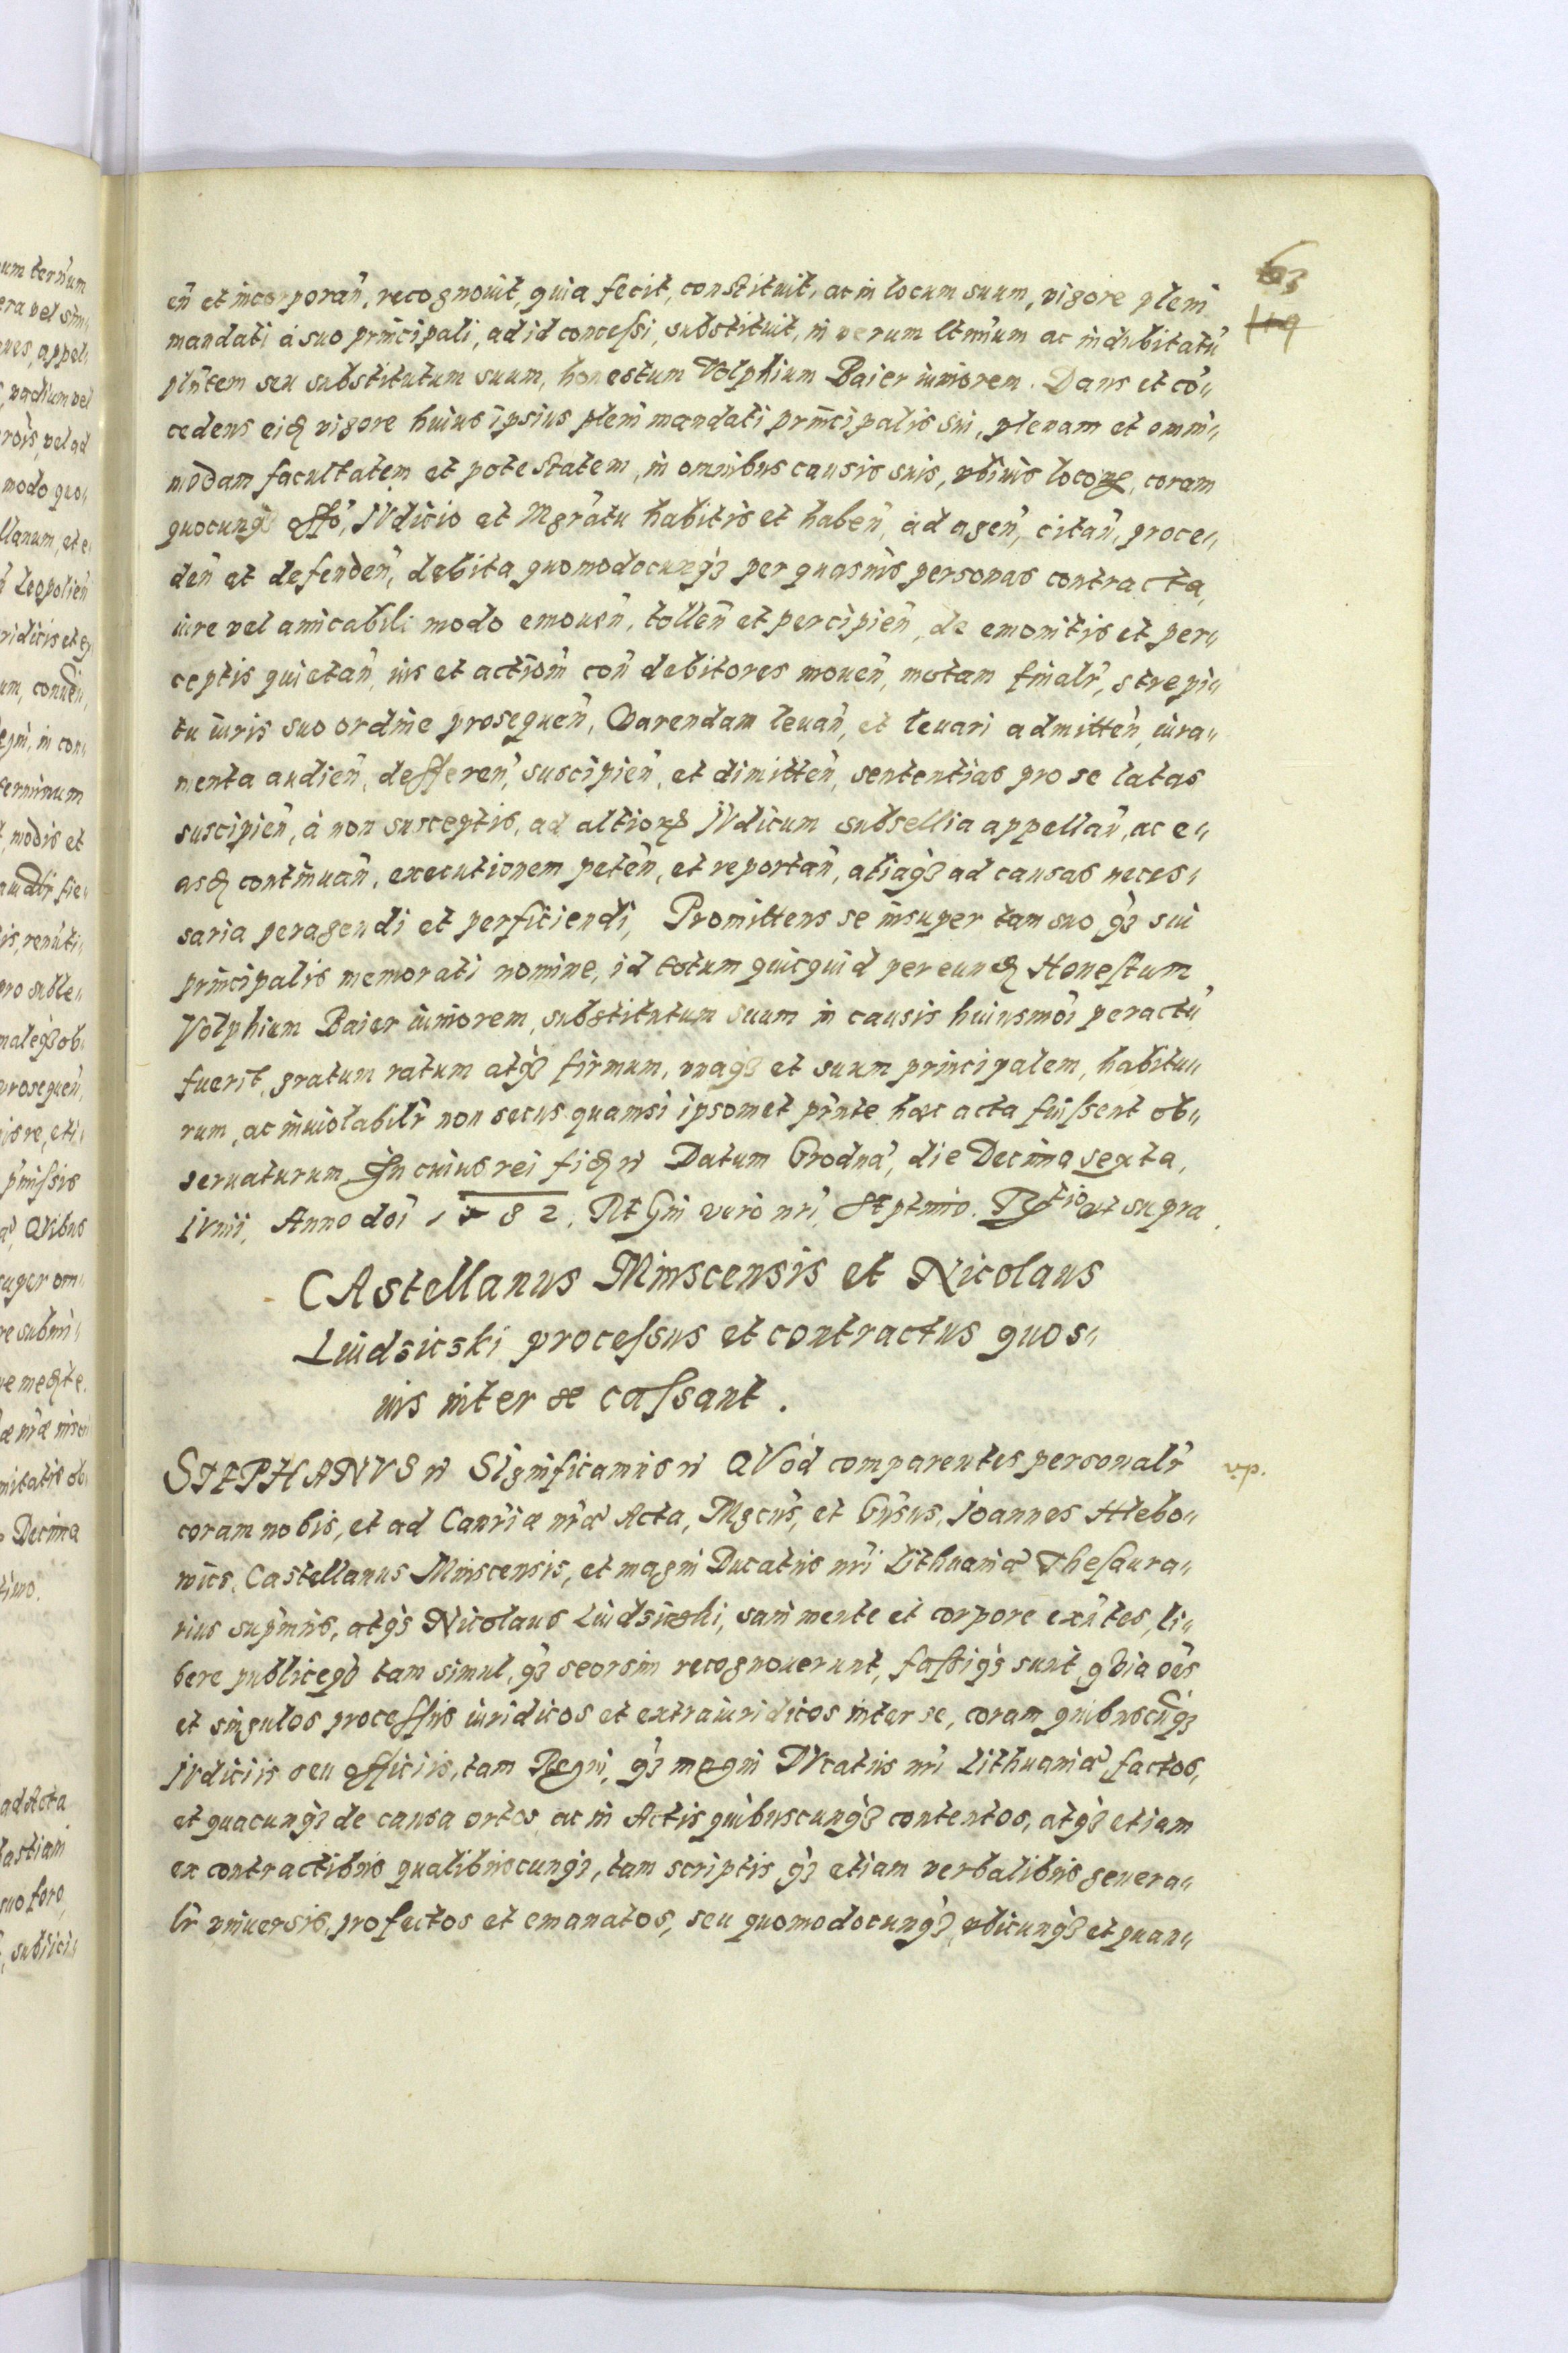 63
119
eñ et incorporañ, recognovit, quia fecit, constituit, ac in locum suum, vigore pleni
mandati à suo principali, ad id concessi, substituit, in verum ltimum ac indubitatũ
plñtem seu substitutum suum, honestum Volphium Baier iuniorem. Dans et cõ„
cedens eidẽ vigore huius ipsius pleni mandati principalis sui, plenam et omni„
modam facultatem et potestatem, in omnibus causis suis, vbiuis locorꝫ, coram
quocunqꝫ offõ, IVdicio et Mgr̃atu habitis et habeñ, ad ageñ, citañ, proce„
deñ et defendeñ, debita quomodocunqꝫ per quasuis personas contracta,
iure vel amicabili modo emoueñ, tolleñ et percipieñ, de emonitis et per„
ceptis quietañ, ius et actiom̃ coñ debitores moueñ, motam finalr̃, strepi„
tu iuris suo ordine prosequeñ, Warendam leuañ, et leuari admitteñ, iura„
menta audieñ, defferen̄, suscipieñ, et dimitteñ, sententias pro se latas
suscipieñ, à non susceptis, ad altiorꝫ IVdicum subsellia appellañ, ac e„
asdẽ continuañ, executionem peteñ, et reportañ, aliaqꝫ ad causas neces„
saria peragendi et perficiendi, Promittens se insuper tam suo qꝫ sui
principalis memorati nomine, id totum quicquid per eundẽ Honestum
Volphium Baier iuniorem, substitutum suum in causis huiusmõi peractũ
fuerit, gratum ratum atqꝫ firmum, vnaqꝫ et suum principalem, habitu„
rum, ac inuiolabilr̃ non secus quamsi ipsomet pñte hæc acta fuissent ob„
seruaturum, In cuius rei fidẽ etc̃ Datum Grodnæ, die Decima sexta,
IVnii, Anno dõi 1582. REgni vero nr̃i, Septimo. ut supra.
CAstellanus Minscensis et Nicolaus
Luidsicski processus et contractus quos„
uis inter se cassant.
STEPHANVS etc̃ SIgnificamus etc̃ QVod comparentes personalr̃
coram nobis, et ad Canr̃iæ nr̃æ Acta, Mgcus, et Gñsus, Ioannes Hlebo„
wics, Castellanus Minscensis, et magni Ducatus nr̃i Lithuaniæ Thesaura„
rius supñus, atqꝫ Nicolaus Luidsicski, sani mente et corpore exñtes, li„
bere publiceqꝫ tam simul, qꝫ seorsim recognouerunt, fassiqꝫ sunt, qVia oẽs
et singulos processus iuridicos et extraiuridicos inter se, coram quibuscũqꝫ
IVdiciis seu officiis, tam Regni, qꝫ magni DVcatus nr̃i Lithuaniæ, factos,
et quacunqꝫ de causa ortos, ac in Actis quibuscunqꝫ contentos, atqꝫ etiam
ex contractibus qualibuscunqꝫ, tam scriptis qꝫ etiam verbalibus genera„
lr̃ vniuersis, profectos et emanatos, seu quomodocunqꝫ, vbicunqꝫ et quan„